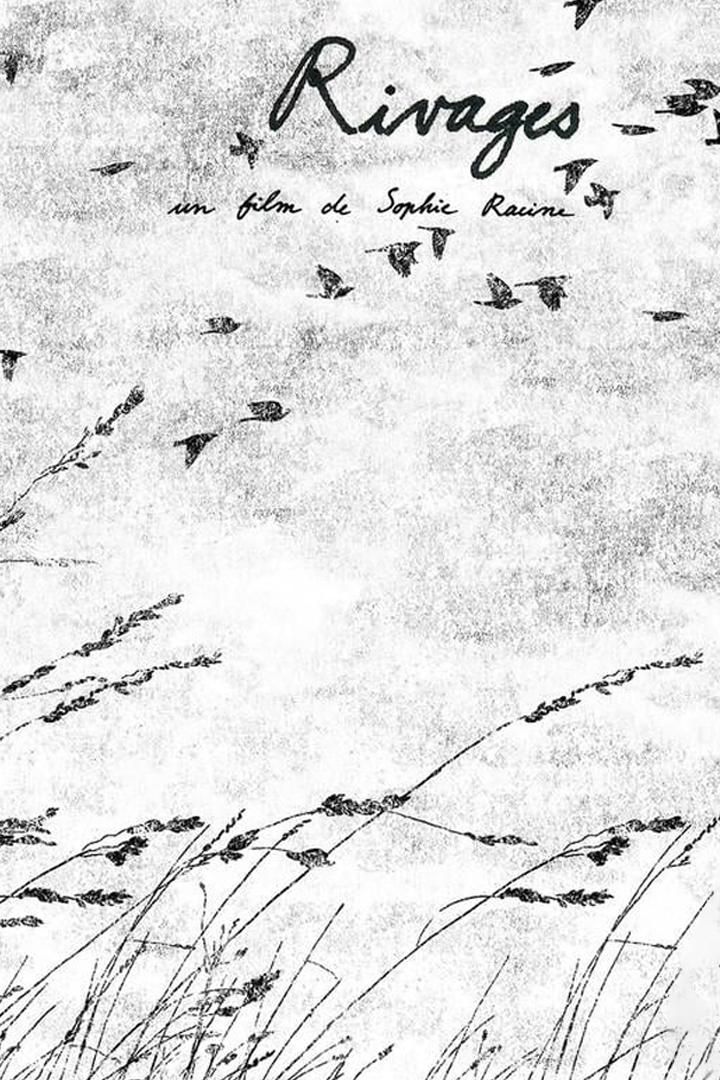 Rivages
un film de Sophie Racine